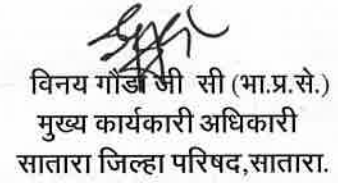 विनय गौडा जी सी (भा.प्र.से.)
मुख्य कार्यकारी अधिकारी
सातारा जिल्हा परिषद,सातारा.